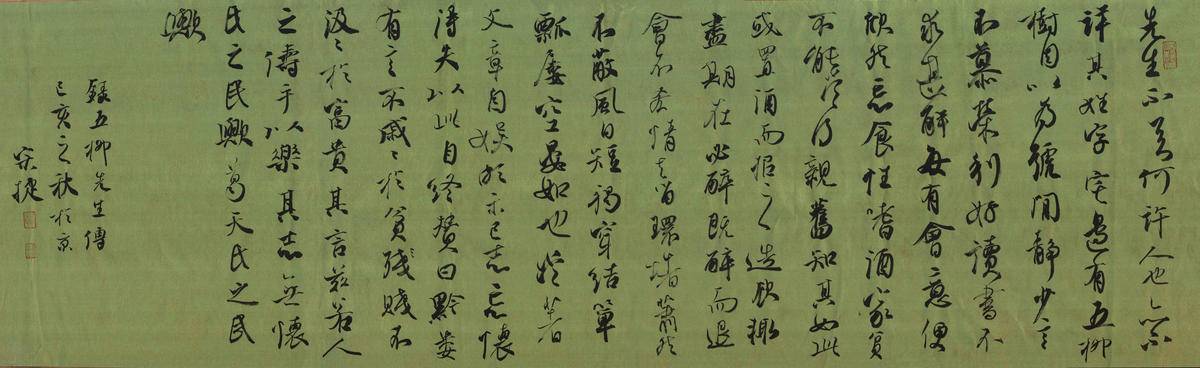 先生不知何許人也亦不
詳其姓字宅邊有五柳
樹因以為號閒靜少言
不慕榮利好讀書不
求甚解每有會意便
欣然忘食性嗜酒家貧
不能常得親舊知其如此
或置酒而招之造飲輒
盡期在必醉既醉而退
曾不吝情去留環堵蕭然
不蔽風日短褐穿結簞
瓢屢空晏如也常著
文章自娛頗示己志忘懷
得失以此自終贊曰黔婁
有言不戚々於貧殘賤不
汲々於富貴其言茲若人
之儔乎以樂其志無懷
氏之民歟葛天氏之民
歟
錄五柳先生傳
己亥之秋於京
宋捷